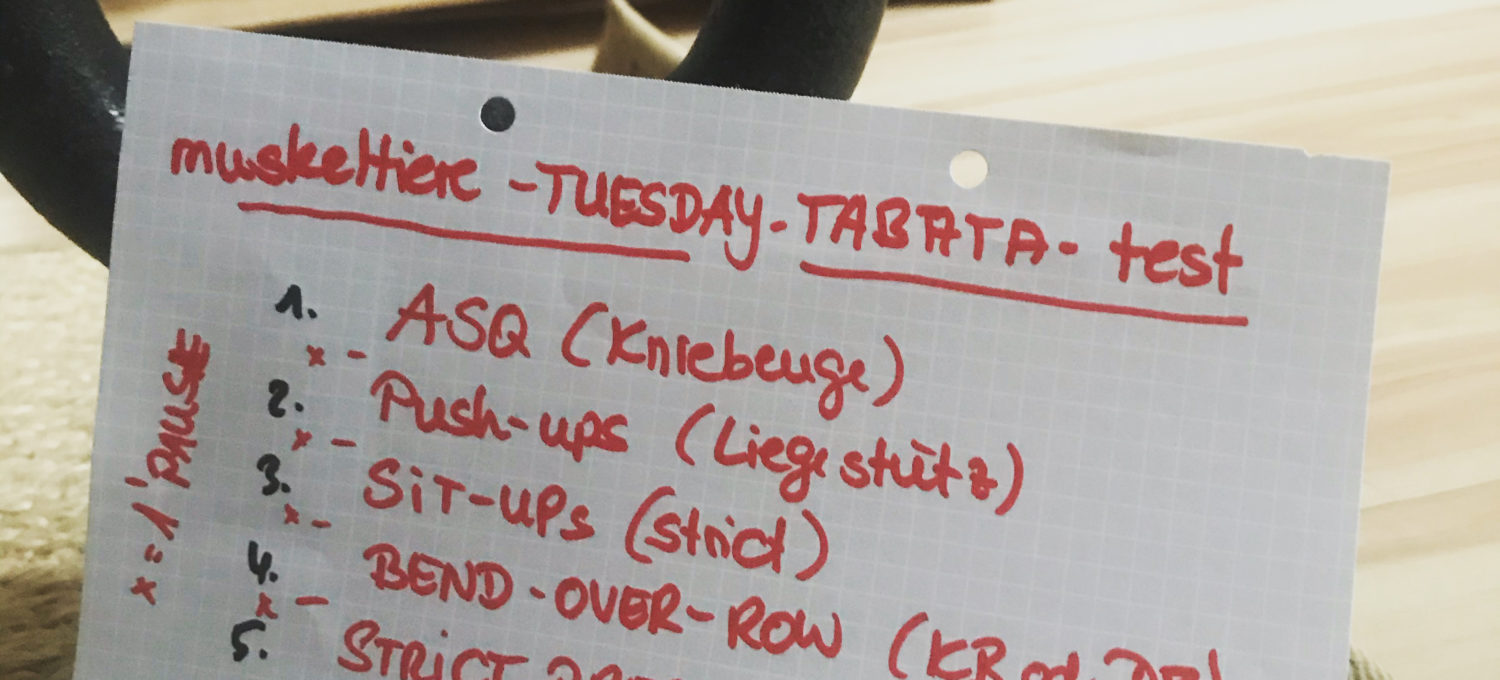 muskeltiere - TUESDAY - TABATA - test
1. ASQ (Kniebeuge)
x -
2. Push-ups (Liegestütz)
x -
3. SiT-UPs (strict)
x -
4. BEND-OVER-ROW (KB od. DB)
x -
5. STRiCT
x = 1' PAUSE